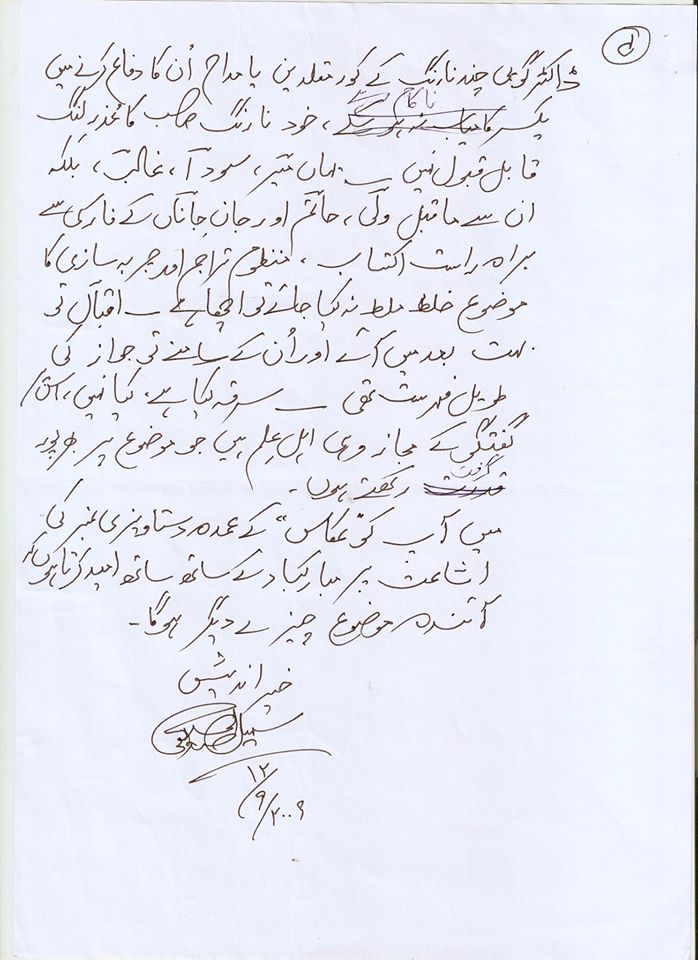 ڈاکٹر گوپی چند نارنگ کے کور مقلدین یا مداح اُن کا دفاع کرنے میں
یکسر ناکام رہے، خود نارنگ صاحب کا عُذر لنگ
قابل قبول نہیں ۔ یہاں میر، سودا، غالب، بلکہ
ان سے ماقبل ولی، حاتم اور جانِ جاناں کے فارسی سے
براہ راست اکتساب، منظوم تراجم اور چربہ سازی کا
موضوع خلط ملط نہ کیا جائے تو اچھا ہے ۔ اقبال تو
بہت بعد میں آئے اور اُن کے سامنے تو جواز کی
طویل فہرست تھی ۔ سرقہ کیا ہے، کیا نہیں، اس
گفتگو کے مجاز وہی اہل علم ہیں جو موضوع پر بھرپور
گرفت رکھتے ہوں ۔
میں آپ کو "عکاس" کے عمدہ دستاویزی نمبر کی
اشاعت پر مبارکباد کے ساتھ ساتھ امید کرتا ہوں کہ
آئندہ موضوع چیزے دیگر ہوگا ۔
خیر اندیش
۱۲/۹/۲۰۰۹